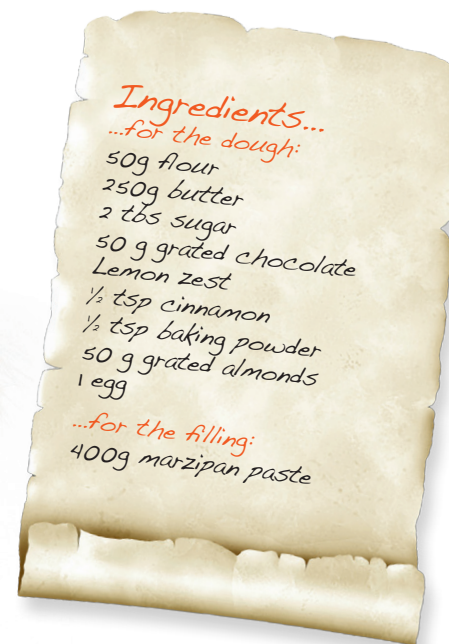 Ingredients...
...for the dough:
50g flour
250g butter
2 tbs sugar
50 g grated chocolate
Lemon zest
½ tsp cinnamon
½ tsp baking powder
50 g grated almonds
1 egg
...for the filling:
400g marzipan paste